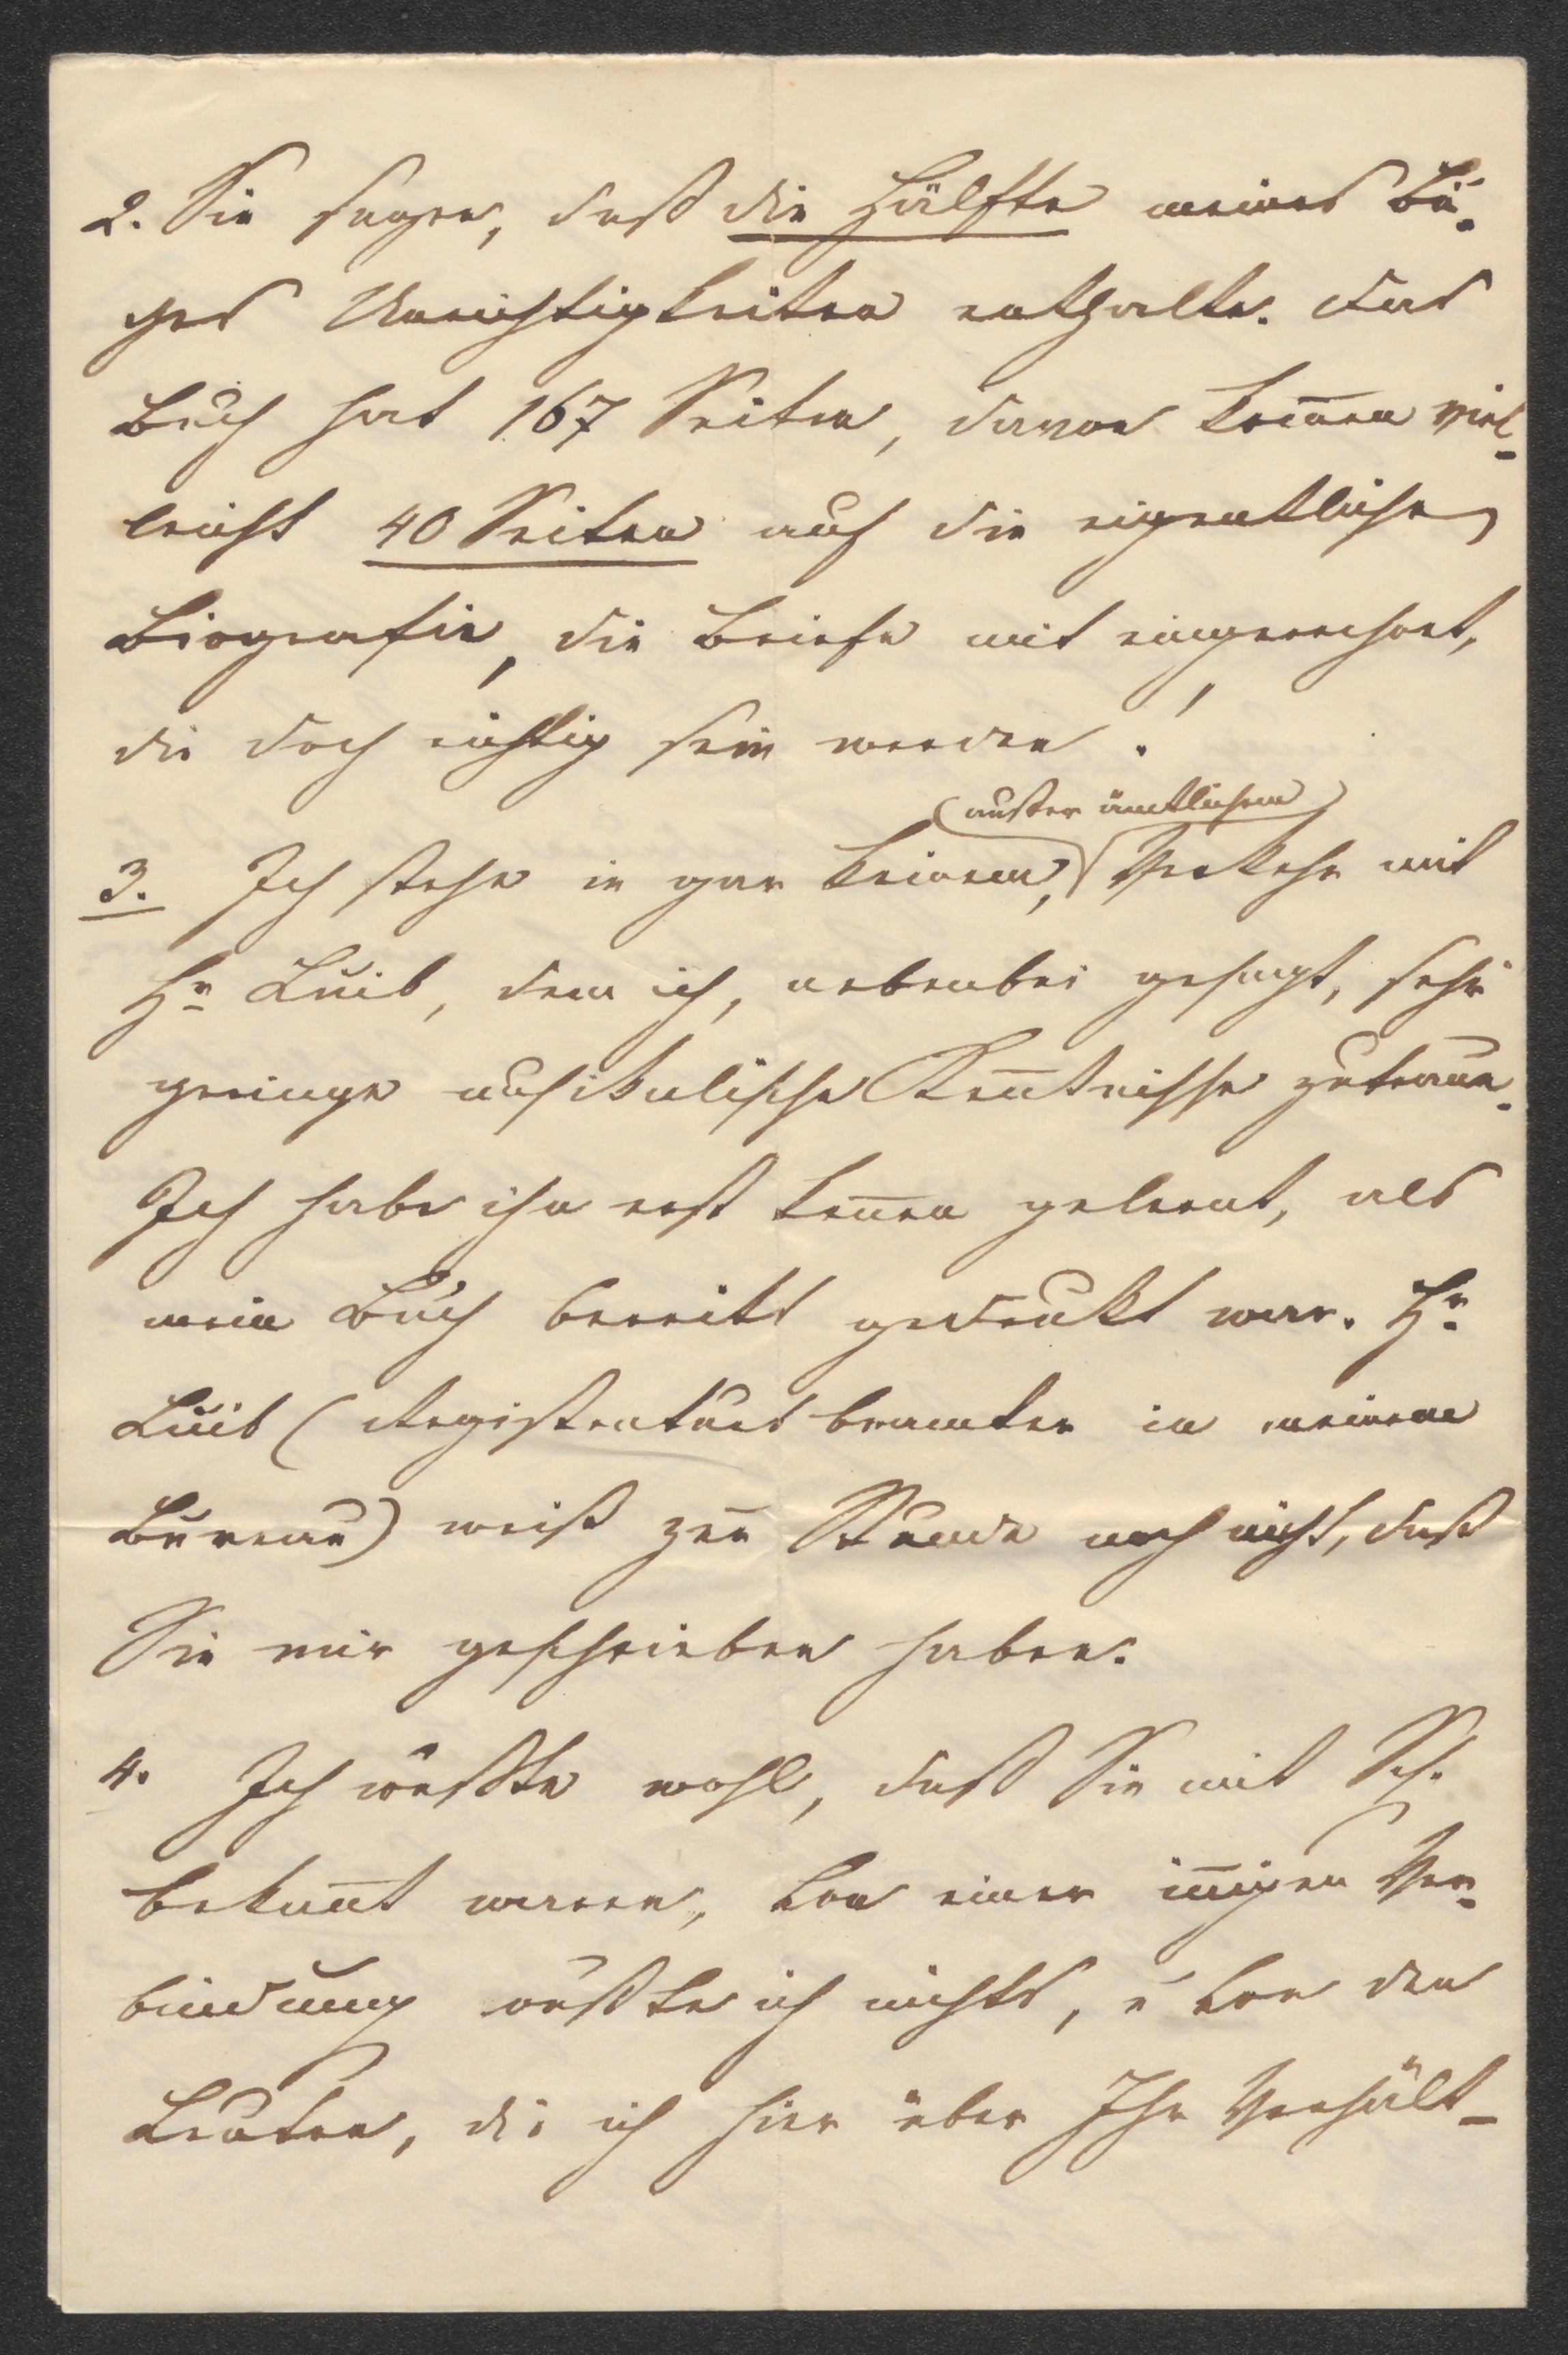 2. Sie sagen, daß die Hälfte meines Bu-
ches Unrichtigkeiten enthalte. Das
Buch hat 167 Seiten, davon kom̄en viel-
leicht 40 Seiten auf die eigentliche
Biografie, die Briefe mit eingerechnet,
die doch richtig sein werden!
(außer ämtlichem)
3. Ich stehe in gar keinem, Verkehr mit
Hr Luib, dem ich, nebenbei gesagt, sehr
geringe musikalische Ken̄tnisse zutraue.
Ich habe ihn erst ken̄en gelernt, als
mein Buch bereits gedrukt war. Hr
Luib (Registratursbeamter in meinem
Bureau) weiß zur Stunde noch nicht, daß
Sie mir geschrieben haben.
4. Ich wußte wohl, daß Sie mit Sch.
bekan̄t waren, von einer in̄igen Ver-
bindung wußte ich nichts, u von den
Leuten, die ich hier über Ihr Verhält-